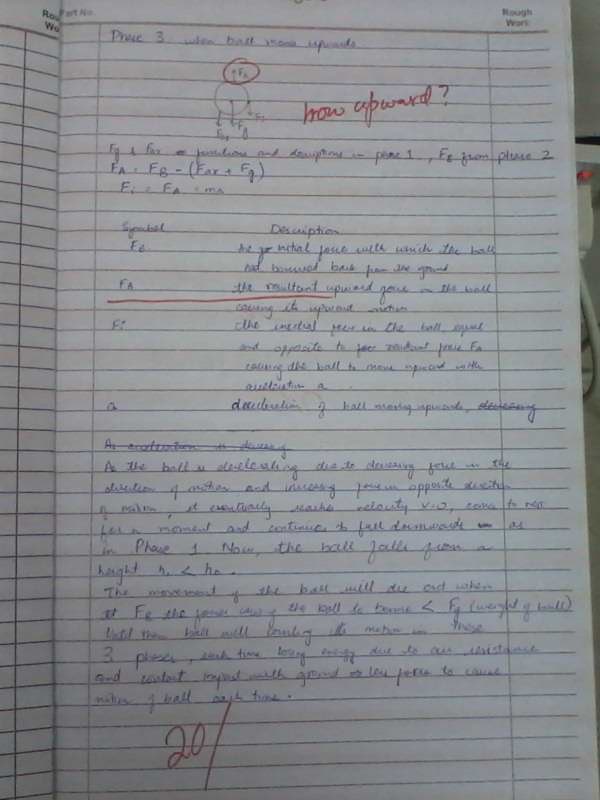 Part No.
Rough
Work
Phase 3 when ball moves upwards
FA
how upward?
Fg
Fg & Fax = functions and descriptions in phase 1, FB from phase 2
FA = FB - (Fax + Fg)
Fi = FA = ma
Symbol Description
FB the initial force with which the ball
had bounced back from the ground
FA the resultant upward force on the ball
causing its upward motion
Fi the inertial force in the ball equal
and opposite to resultant force FA
causing the ball to move upward with
acceleration a
a deceleration of ball moving upwards,
As the ball is decelerating due to decreasing force in the
direction of motion and increasing force in opposite direction
of motion, it eventually reaches velocity v=0, comes to rest
for a moment and continues to fall downwards as
in Phase 1. Now, the ball falls from a
height h1 < h0.
The movement of the ball will die out when
FB the force causing the ball to bounce < Fg (weight of ball)
Until then ball will continue its motion in these
3 phases, each time losing energy due to air resistance
and contact impact with ground so less force to cause
motion of ball each time.
20/